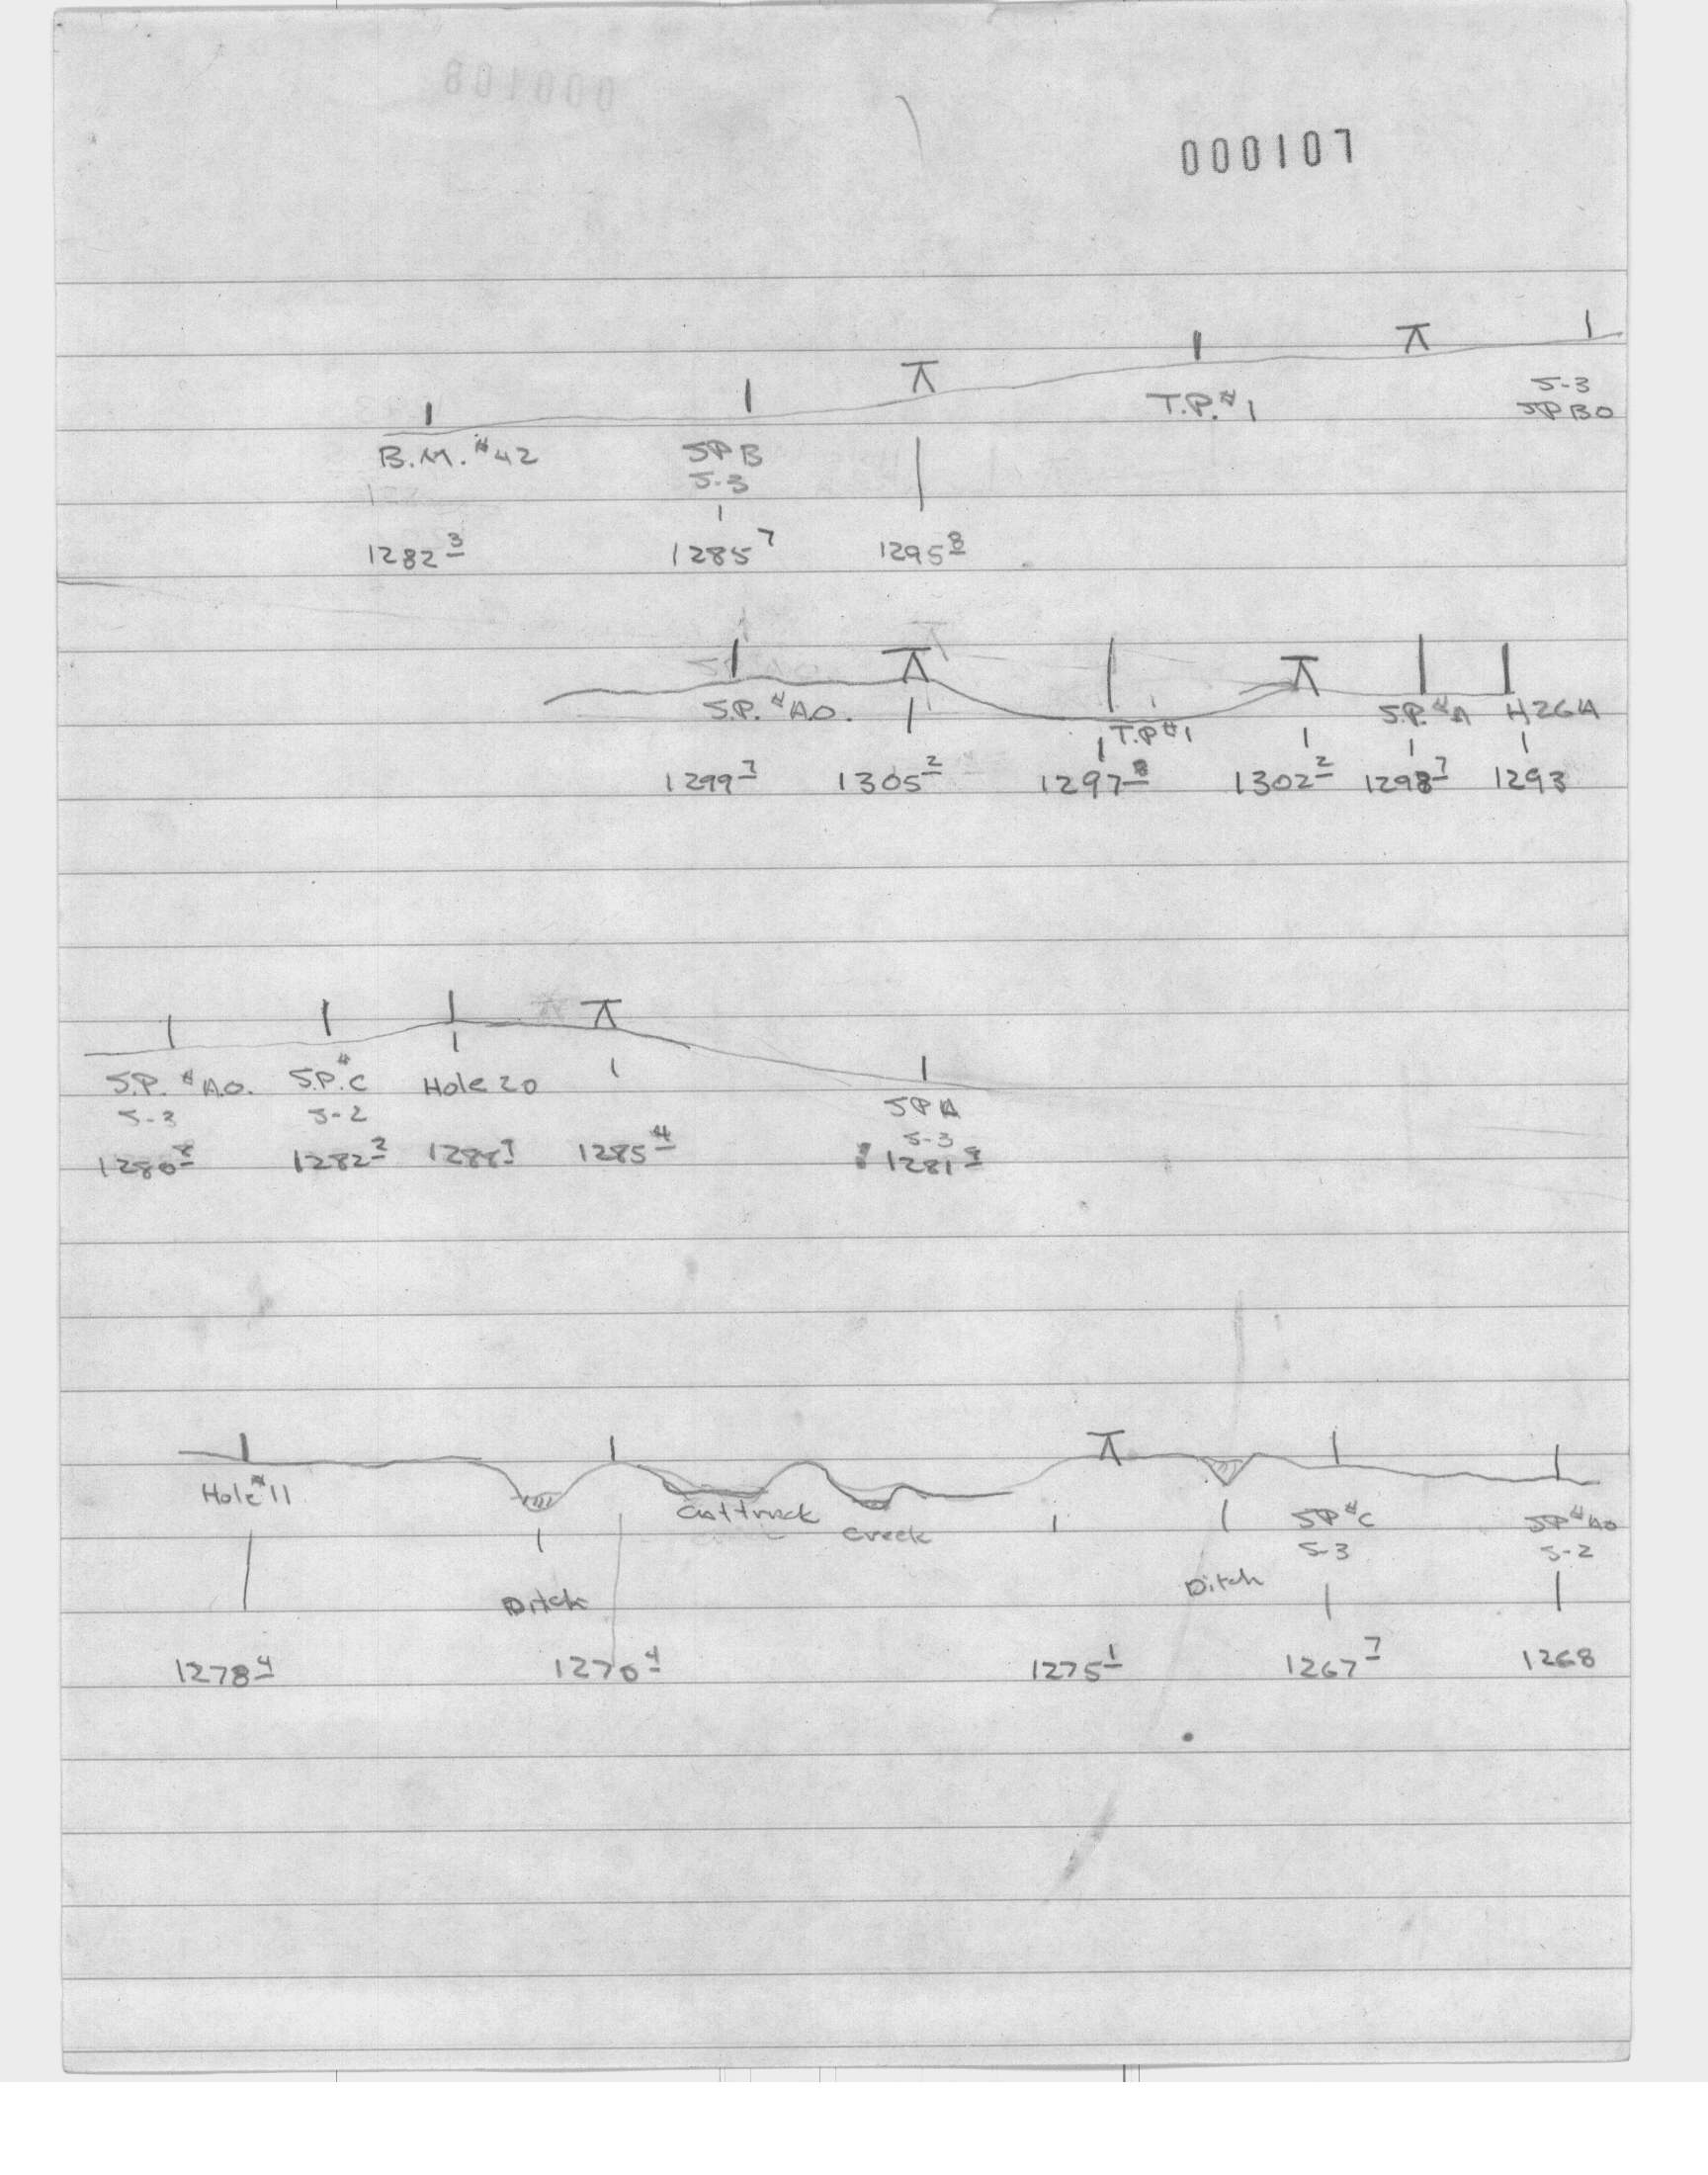 000108
000107
S-3
T.P.#1 SPB0
B.M.#42 SPB
S-3
1282 3 1285 7 1295 8
S.P.#A.O. T.P#1 S.P.#A H26A
1299 7 1305 2 1297 8 1302 2 1298 7 1293
S.P.#A.O. S.P.#C Hole 20 SPA
S-3 S-2 S-3
1280 8 1282 2 1285 4 1281
Hole #11 Cattrack Creek SP#C SP#A0
S-3 S-2
Ditch Ditch
1278 4 1270 4 1275 1 1267 7 1268